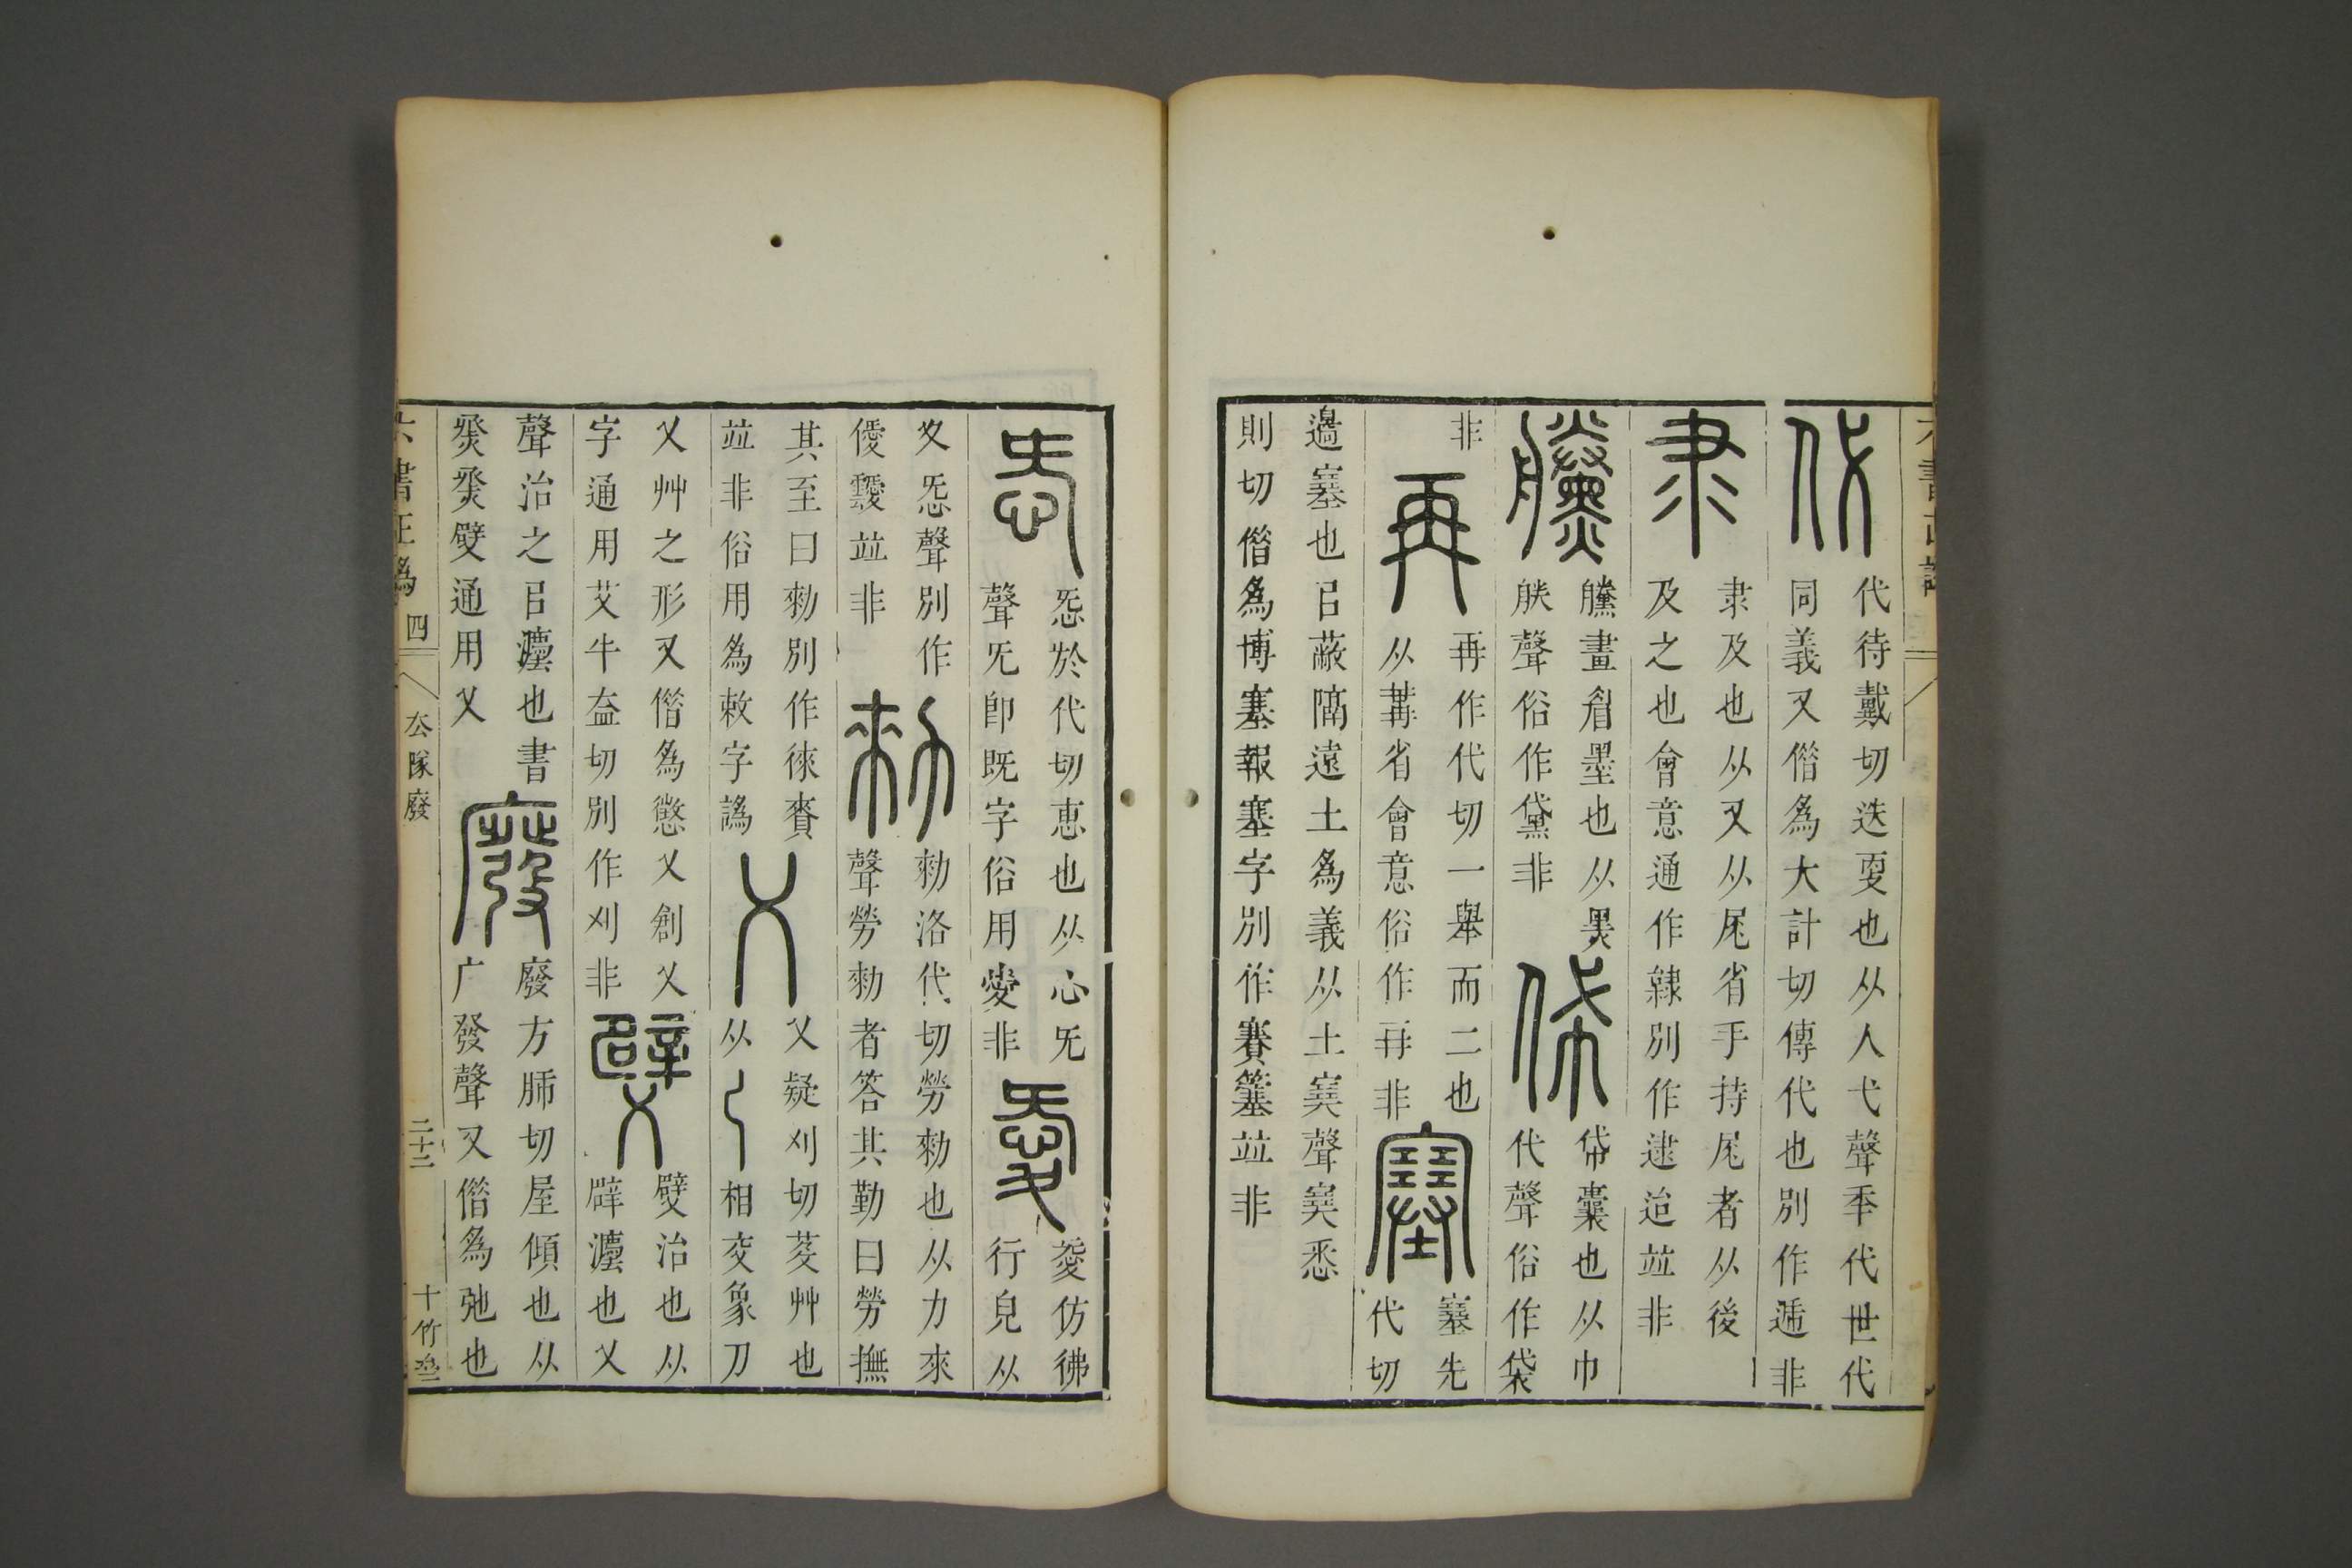 代
代待戴切迭㪅也从人弋聲秊代世代
同義又偝為大計切傳代也別作遞非
隶
隶及也从又从尾省手持尾者从後
及之也會意通作隸別作逮迨竝非
黱
黱畫眉墨也从黑
朕聲俗作黛非
帒
帒囊也从巾
代聲俗作袋
非
再
再作代切一舉而二也
从冓省會意俗作再非
塞
塞先
代切
邊塞也㠯蔽隔遠土為義从土㝮聲㝮悉
則切偝為博塞報塞字別作賽簺竝非
㤅
㤅於代切惠也从心旡
聲旡即既字俗用愛非
愛
愛仿彿
行皃从
夊㤅聲別作
僾靉竝非
勑
勑洛代切勞勑也从力來
聲勞勑者答其勤曰勞撫
其至曰勑別作徠賚
竝非俗用為敕字譌
乂
乂疑刈切芟艸也
从乀相交象刀
乂艸之形又偝為懲乂創乂
字通用艾牛益切別作刈非
嬖
嬖治也从
辟灋也乂
聲治之㠯灋也書
烝烝嬖通用乂
廢
廢方肺切屋傾也从
广發聲又偝為弛也
六書正譌 四 厺隊廢 二十二 十竹齋